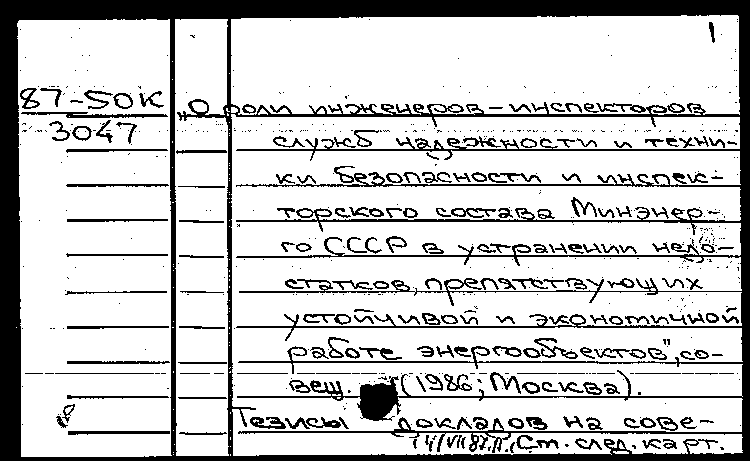 1
87-50К „О роли инженеров-инспекторов
3047 служб надежности и техни-
ки безопасности и инспек-
торского состава Минэнер-
го СССР в устранении недо-
статков, препятствующих
устойчивой и экономичной
работе энергообъектов", со-
вещ. (1986; Москва).
Тезисы докладов на сове-
См. след. карт.